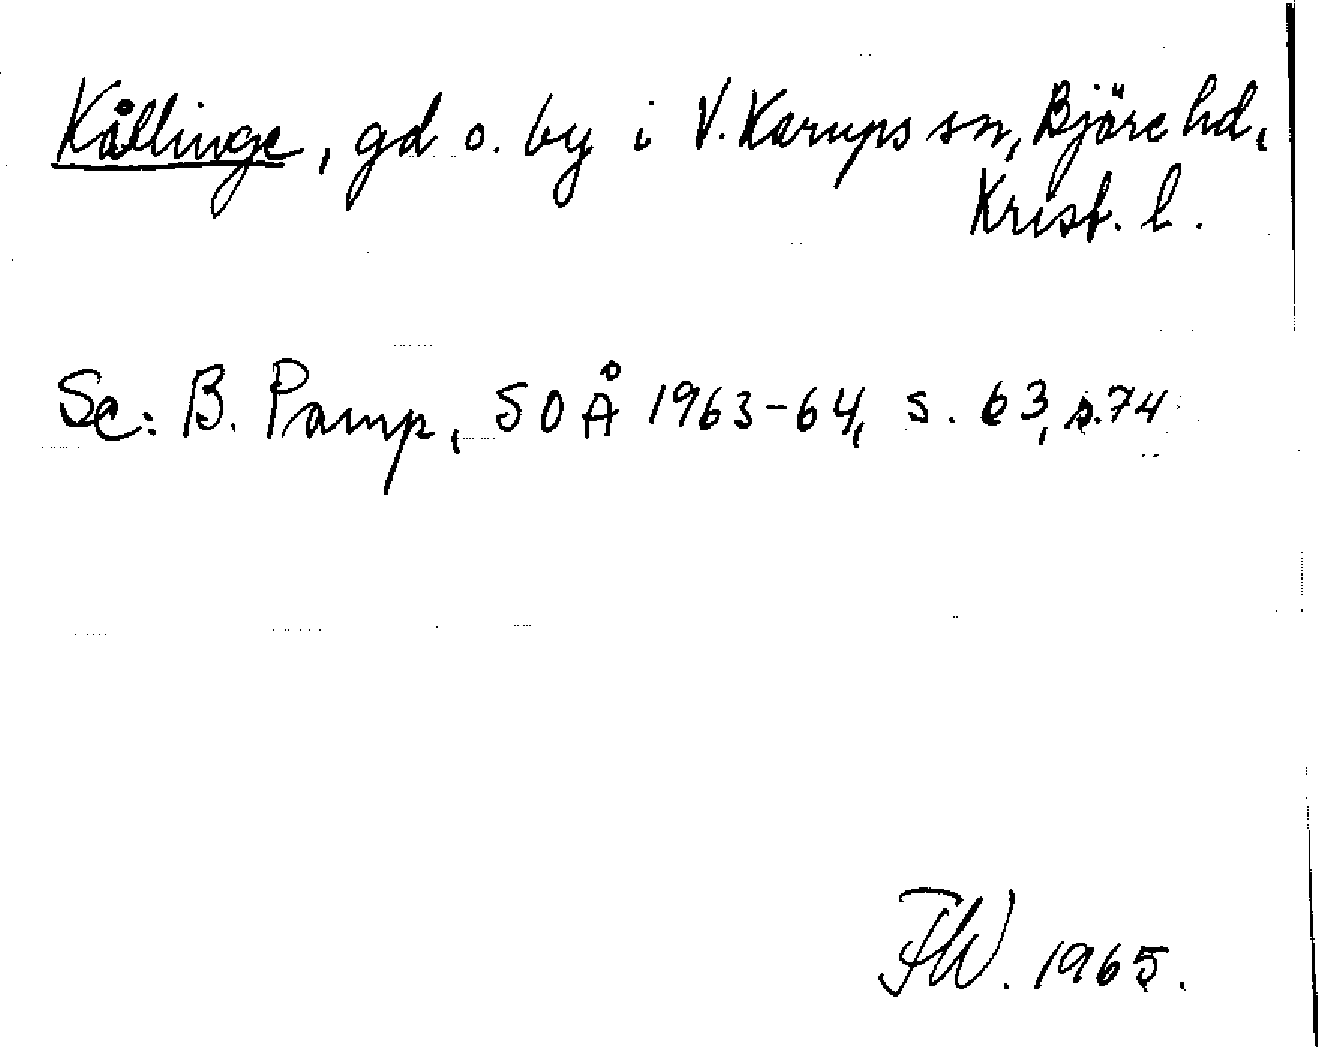 Kållinge, gd o. by i V. Karups sn, Bjäre hd,
Krist. l.
Se: B. Pamp, SOÅ 1963-64, s. 63, s. 74
FW. 1965.